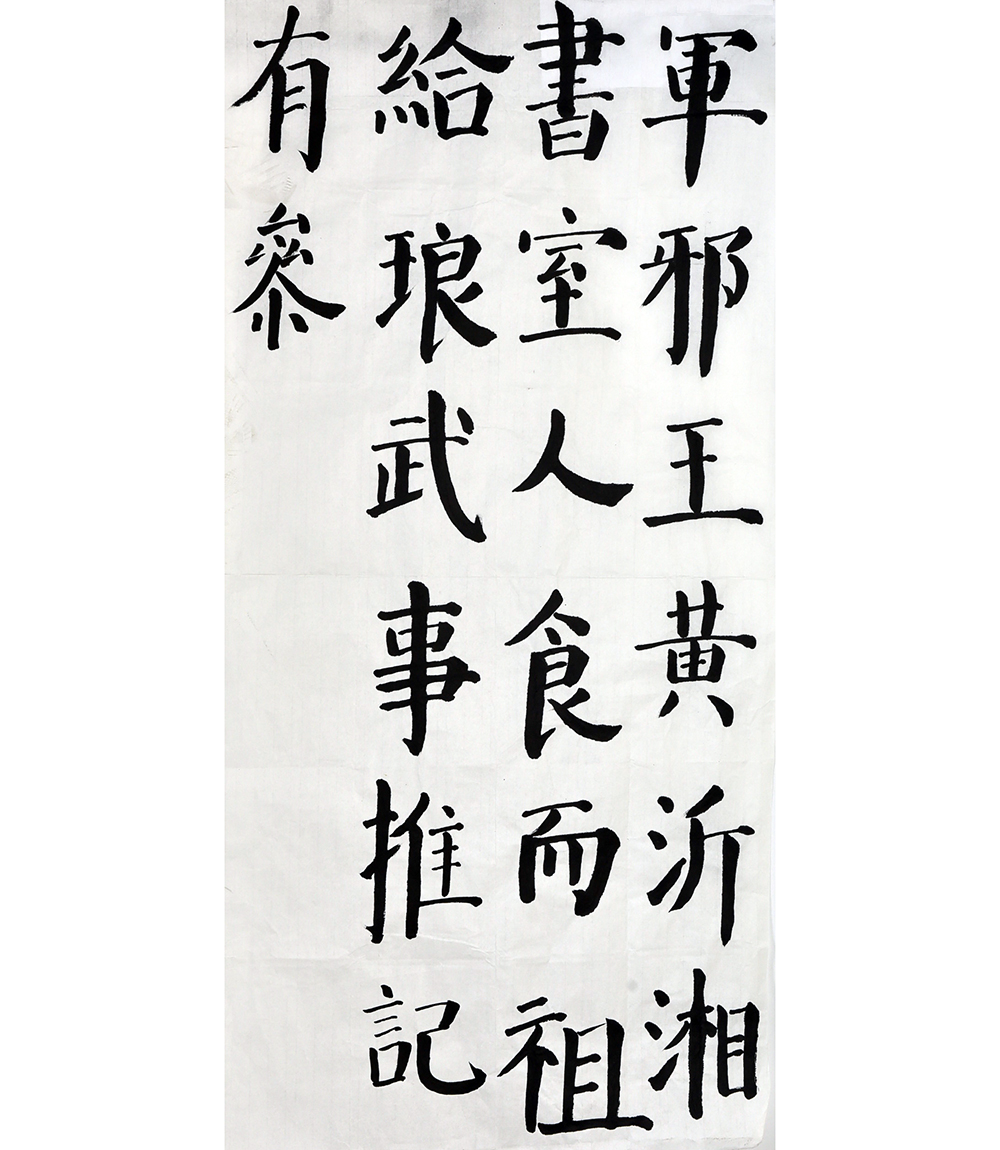 軍邪王黄沂湘
書室人食而祖
給琅武事推記
有叅